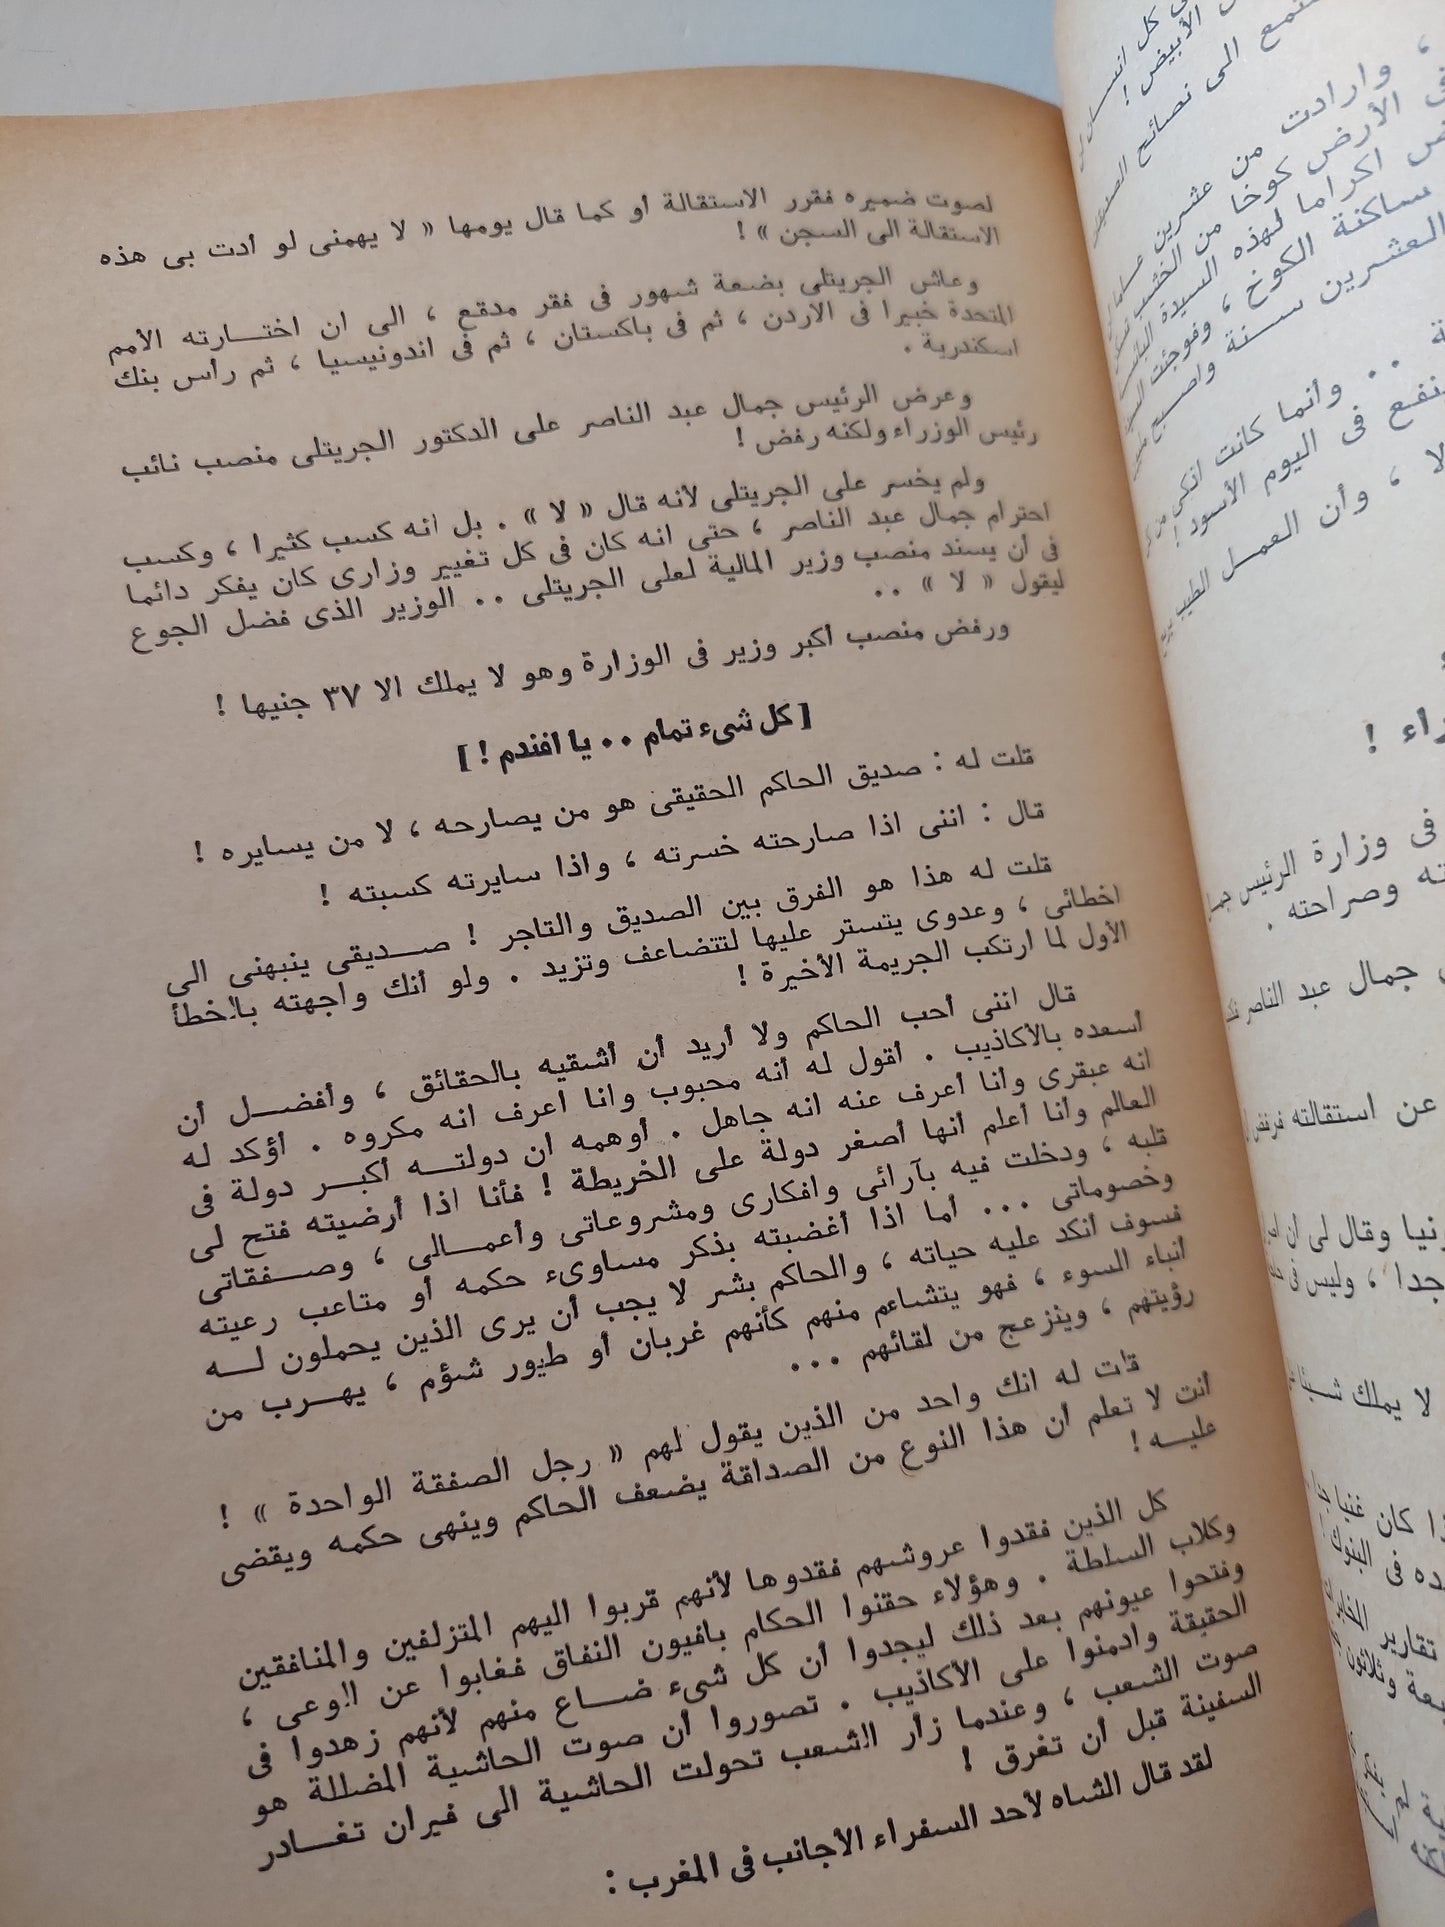 لصوت ضميره فقرر الاستقالة أو كما قال يومها « لا يهمنى لو أدت بى هذه
الاستقالة الى السجن » !
وعاش الجريتلى بضعة شهور فى فقر مدقع ، الى ان اختـــارته الأمم
المتحدة خبيرا فى الاردن ، ثم فى باكستان ، ثم فى اندونيسيا ، ثم رأس بنك
اسكندرية .
وعرض الرئيس جمال عبد الناصر على الدكتور الجريتلى منصب نائب
رئيس الوزراء ولكنه رفض !
ولم يخسر على الجريتلى لأنه قال « لا » . بل انه كسب كثيرا ، وكسب
احترام جمال عبد الناصر ، حتى انه كان فى كل تغيير وزارى كان يفكر دائما
فى أن يسند منصب وزير المالية لعلى الجريتلى .. الوزير الذى فضل الجوع
ليقول « لا » ..
ورفض منصب أكبر وزير فى الوزارة وهو لا يملك الا ٣٧ جنيها !
[ كل شىء تمام .. يا افندم ! ]
قلت له : صديق الحاكم الحقيقى هو من يصارحه ، لا من يسايره !
قال : اننى اذا صارحته خسرته ، واذا سايرته كسبته !
قلت له هذا هو الفرق بين الصديق والتاجر ! صـــديقى ينبهنى الى
اخطائى ، وعدوى يتستر عليها لتتضاعف وتزيد . ولو أنك واجهته بالخطأ
الأول لما ارتكب الجريمة الأخيرة !
قال اننى أحب الحاكم ولا أريد أن أشقيه بالحقائق ، وأفضـــل أن
أسعده بالأكاذيب . أقول له أنه محبوب وانا اعرف انه مكروه . أؤكد له
انه عبقرى وأنا أعرف عنه انه جاهل . أوهمه ان دولتـــه أكبـــر دولة فى
العالم وأنا أعلم أنها أصغر دولة على الخريطة ! فأنا اذا أرضيته فتح لى
قلبه ، ودخلت فيه بآرائى وافكارى ومشروعاتى وأعمـــالى ، وصـــفقاتى
وخصوماتى ... أما اذا أغضبته بذكر مساوىء حكمه أو متاعب رعيته
فسوف أنكد عليه حياته ، والحاكم بشر لا يجب أن يرى الذين يحملون لـــه
أنباء السوء ، فهو يتشاءم منهم كأنهم غربان أو طيور شؤم ، يهـــرب من
رؤيتهم ، وينزعج من لقائهم ...
قلت له انك واحد من الذين يقول لهم « رجل الصفقة الواحدة » !
أنت لا تعلم أن هذا النوع من الصداقة يضعف الحاكم وينهى حكمه ويقضى
عليـــه !
كل الذين فقدوا عروشهم فقدوها لأنهم قربوا اليهم المتزلفين والمنافقين
وكلاب السلطة . وهؤلاء حقنوا الحكام بافيون النفاق فغابوا عن الوعى ،
وفتحوا عيونهم بعد ذلك ليجدوا أن كل شىء ضـــاع منهم لأنهم زهدوا فى
الحقيقة وادمنوا على الأكاذيب . تصوروا أن صوت الحاشية المضللة هو
صوت الشعب ، وعندما زأر الشعب تحولت الحاشية الى فيران تغـــادر
السفينة قبل أن تغرق !
لقد قال الشاه لأحد السفراء الأجانب فى المغرب :
كل انســـان
الأبيض !
الى نصائح
، وارادت من عشرين
فى الأرض كوخا من الخشب
اكراما لهذه السيدة
ساكنة الكوخ ، وفوجئت
العشرين سنة واصبح
.. وأنما كانت
فى اليوم الأسود !
لا ، وأن العمـــل الطيب
فى وزارة الرئيس
وصراحته .
جمال عبد الناصر
عن استقالته
وقال لى أن
جدا ، وليس فى
لا يملك
كان غنيا
فى البنوك
تقارير
وثلاثون